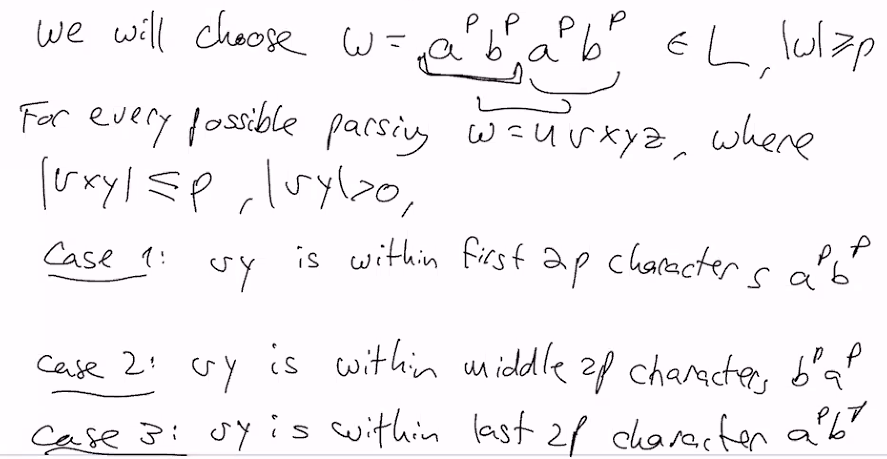 we will choose w = aᵖbᵖaᵖbᵖ ∈ L, |w|≥p
For every possible parsing w=uvxyz, where
|vxy| ≤ p, |vy|>0,
Case 1: vy is within first 2p characters aᵖbᵖ
Case 2: vy is within middle 2p characters bᵖaᵖ
Case 3: vy is within last 2p character aᵖbᵖ